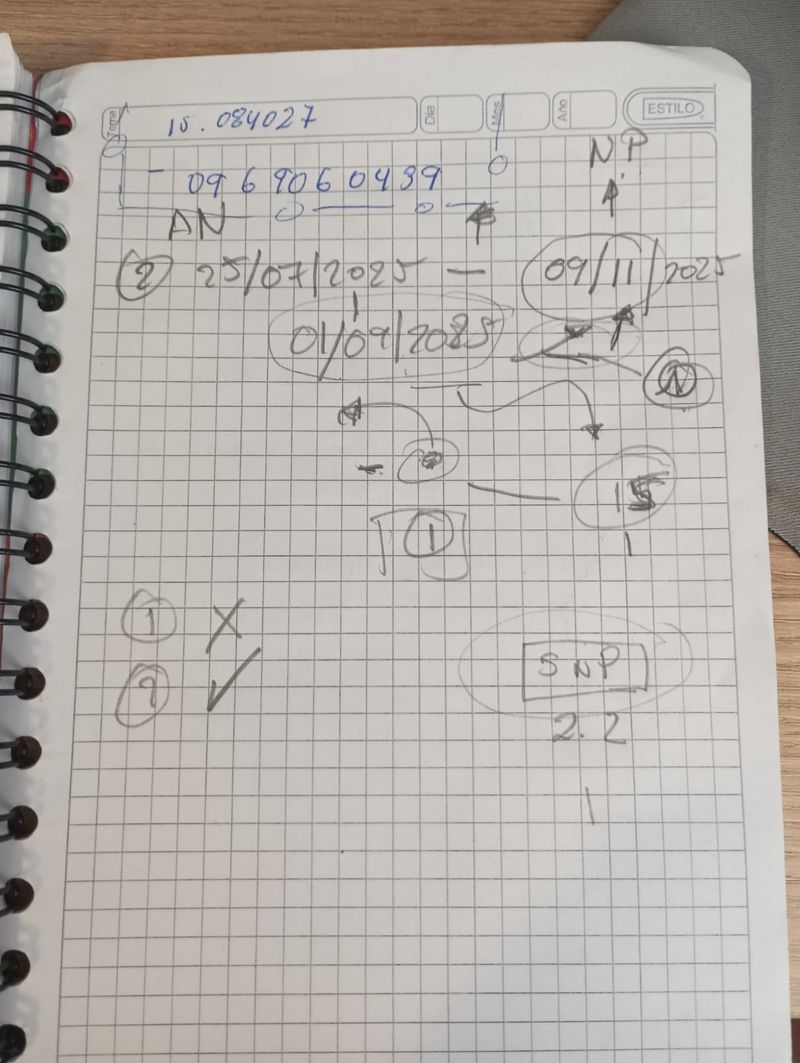 Tema 15.084027 Día Mes Año ESTILO
- 09 6 90 6 04 39
NP
AN
② 25/07/2025 — 09/11/2025
01/09/2025
N
15
①
① X
② ✓
SNP
2.2